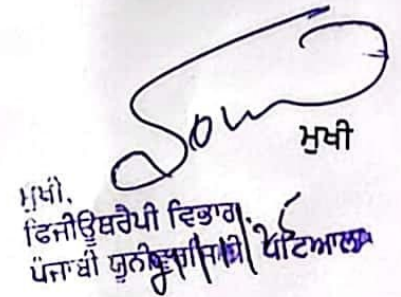 ਮੁਖੀ
ਮੁਖੀ,
ਫਿਜੀਊਥਰੈਪੀ ਵਿਭਾਗ,
ਪੰਜਾਬੀ ਯੂਨੀਵਰਸਿਟੀ ਪਟਿਆਲਾ